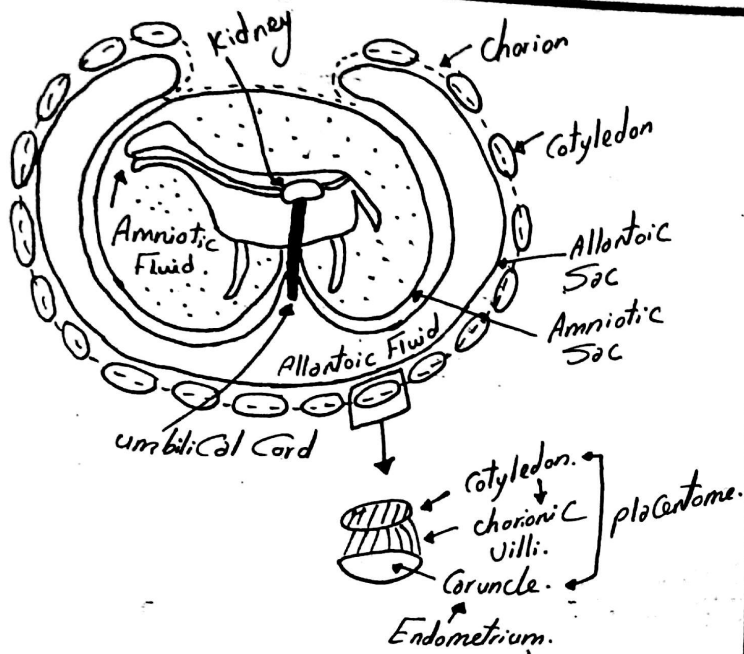 Kidney
Chorion
Cotyledon
Amniotic
Fluid.
Allantoic
Sac
Amniotic
Sac
Allantoic Fluid
umbilical Cord
Cotyledon.
chorionic
villi.
placentome.
Caruncle.
Endometrium.